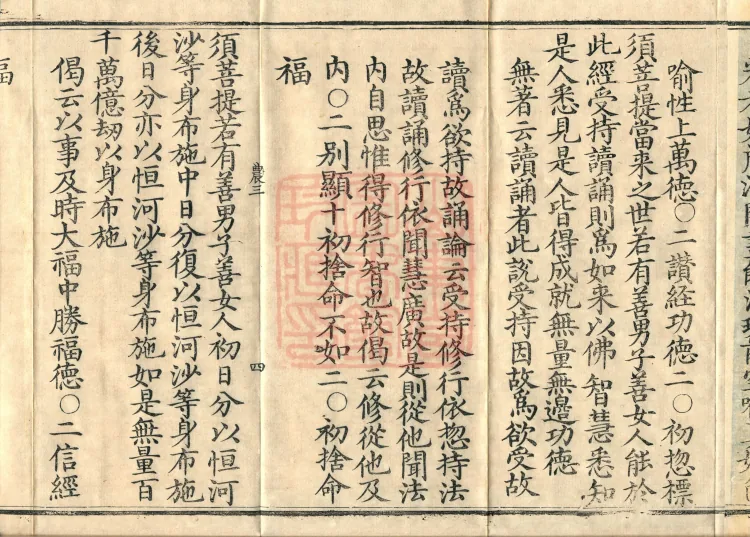 喻性上萬德〇二讚経功德二〇初惣標
須菩提當来之世若有善男子善女人能於
此經受持讀誦則爲如来以佛智慧悉知
是人悉見是人皆得成就無量無邊功德
無著云讀誦者此說受持因故爲欲受故
讀爲欲持故誦論云受持修行依惣持法
故讀誦修行依聞慧廣故是則從他聞法
内自思惟得修行智也故偈云修從他及
内〇二别顯十初捨命不如二〇初捨命
福
農三
四
須菩提若有善男子善女人初日分以恒河
沙等身布施中日分復以恒河沙等身布施
後日分亦以恒河沙等身布施如是無量百
千萬億劫以身布施
偈云以事及時大福中勝福德〇二信經
福